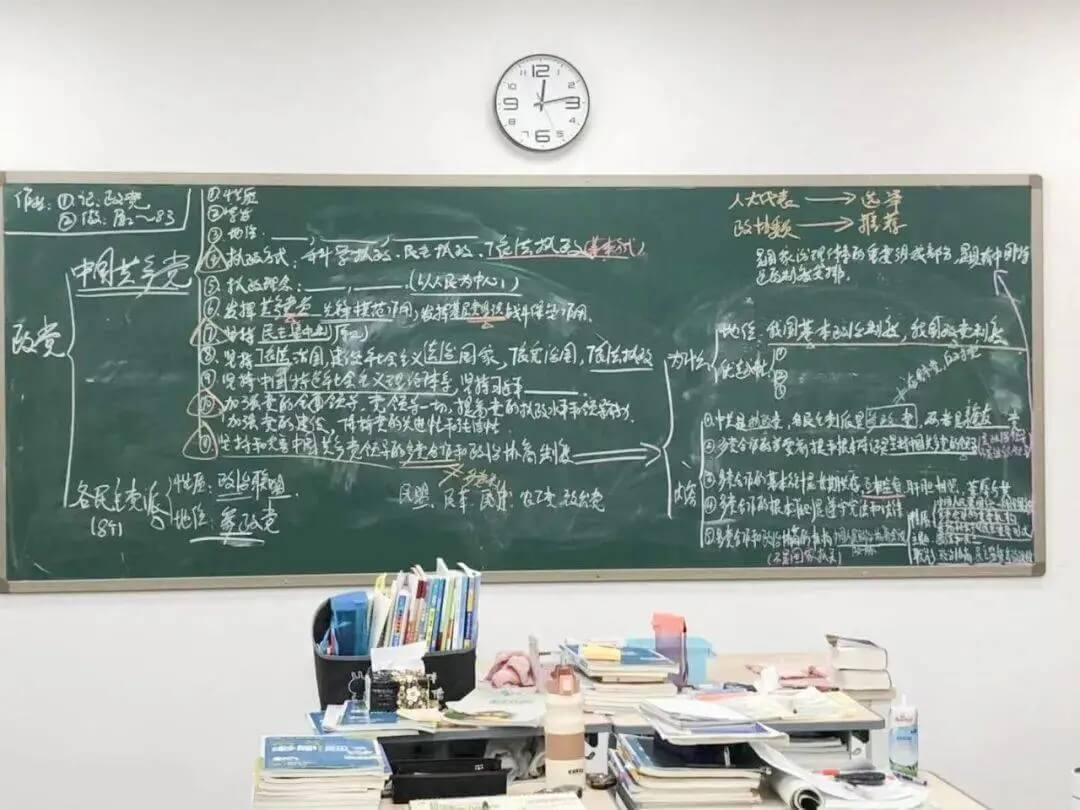 作业：①记：政党
②做：周2～83
政党
中国共产党
①性质
②宗旨
③地位：
④执政方式：科学执政、民主执政、依法执政(基本方式)
⑤执政理念：(以人民为中心)
⑥发挥共产党员先锋模范作用，发挥基层党组织战斗堡垒作用
⑦坚持民主集中制
⑧坚持依法治国，建设社会主义法治国家，依宪治国，依法执政
⑨坚持中国特色社会主义理论体系，坚持习近平
⑩加强党的全面领导，党领导一切，提高党的执政水平和领导能力
加强党的建设，保持党的先进性和纯洁性
⑪坚持和完善中国共产党领导的多党合作和政治协商制度
各民主党派
(8个)
性质：政治联盟
地位：参政党
民盟、民革、民建、农工党、致公党
人大代表→选举
政协委员→推荐
是国家治理体系的重要组成部分，是具有中国特色的制度安排
为什么
地位：我国基本政治制度，我国政党制度
优越性：
①
②
③
内容
①中共是执政党，各民主党派是参政党，两者是亲密友党
②多党合作的首要前提和根本保证是坚持中国共产党的领导
③多党合作的基本方针：长期共存、互相监督、肝胆相照、荣辱与共
④多党合作的根本准则是遵守宪法和法律
⑤多党合作和政治协商的机构：中国人民政治协商会议
(不是国家机关)
性质：
主题：
职能：政治协商、民主监督、参政议政
12
3
6
9